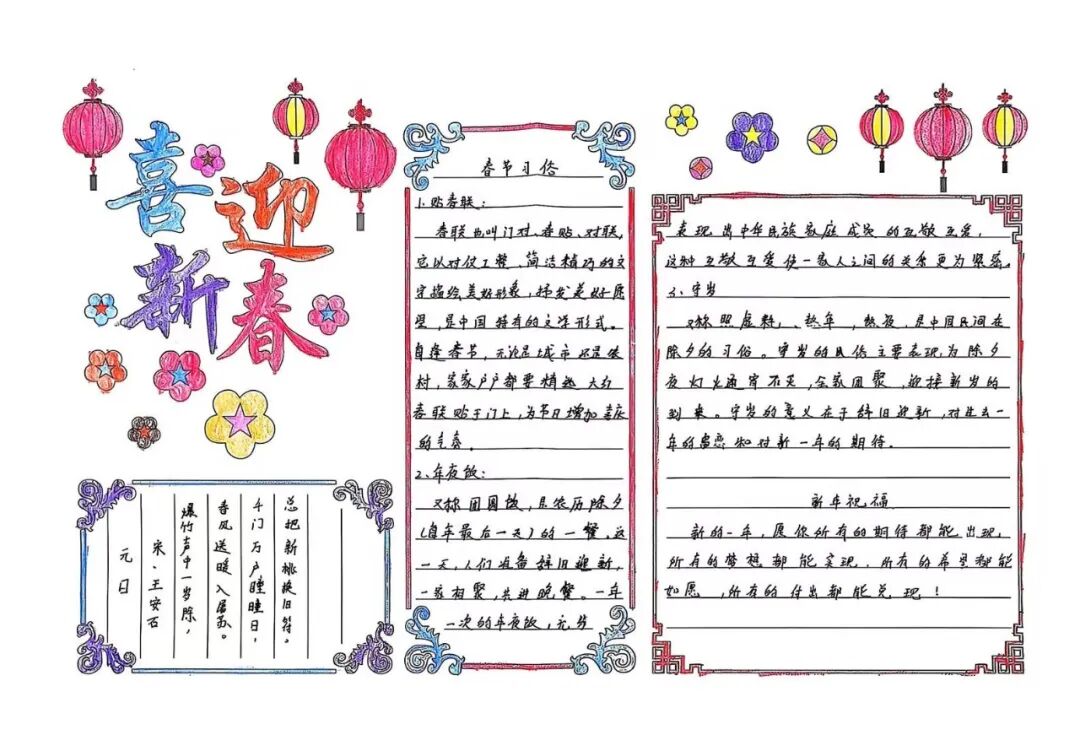 喜迎
新春
元日
宋、王安石
爆竹声中一岁除，
春风送暖入屠苏。
千门万户瞳瞳日，
总把新桃换旧符。
春节习俗
1、贴春联：
春联也叫门对、春贴、对联，
它以对仗工整、简洁精巧的文
字描绘美好形象，抒发美好愿
望，是中国特有的文学形式。
每逢春节，无论是城市还是农
村，家家户户都要精选 大红
春联贴于门上，为节日增加喜庆
的气氛。
2、年夜饭：
又称团圆饭，是农历除夕
（每年最后一天）的一餐，这
一天，人们准备辞旧迎新，
一家相聚，共进晚餐。一年
一次的年夜饭，充分
表现出中华民族家庭成员的互敬互爱，
这种互敬互爱使一家人之间的关系更为紧密。
3、守岁
又称照虚耗、，熬年，熬夜，是中国民间在
除夕的习俗。守岁的民俗主要表现为除夕
夜灯火通宵不灭，全家团聚，迎接新岁的
到来。守岁的意义在于辞旧迎新，对过去一
年的留恋和对新一年的期待。
新年祝福
新的一年，愿你所有的期待都能出现，
所有的梦想都能实现，所有的希望都能
如愿，所有的付出都能兑现！